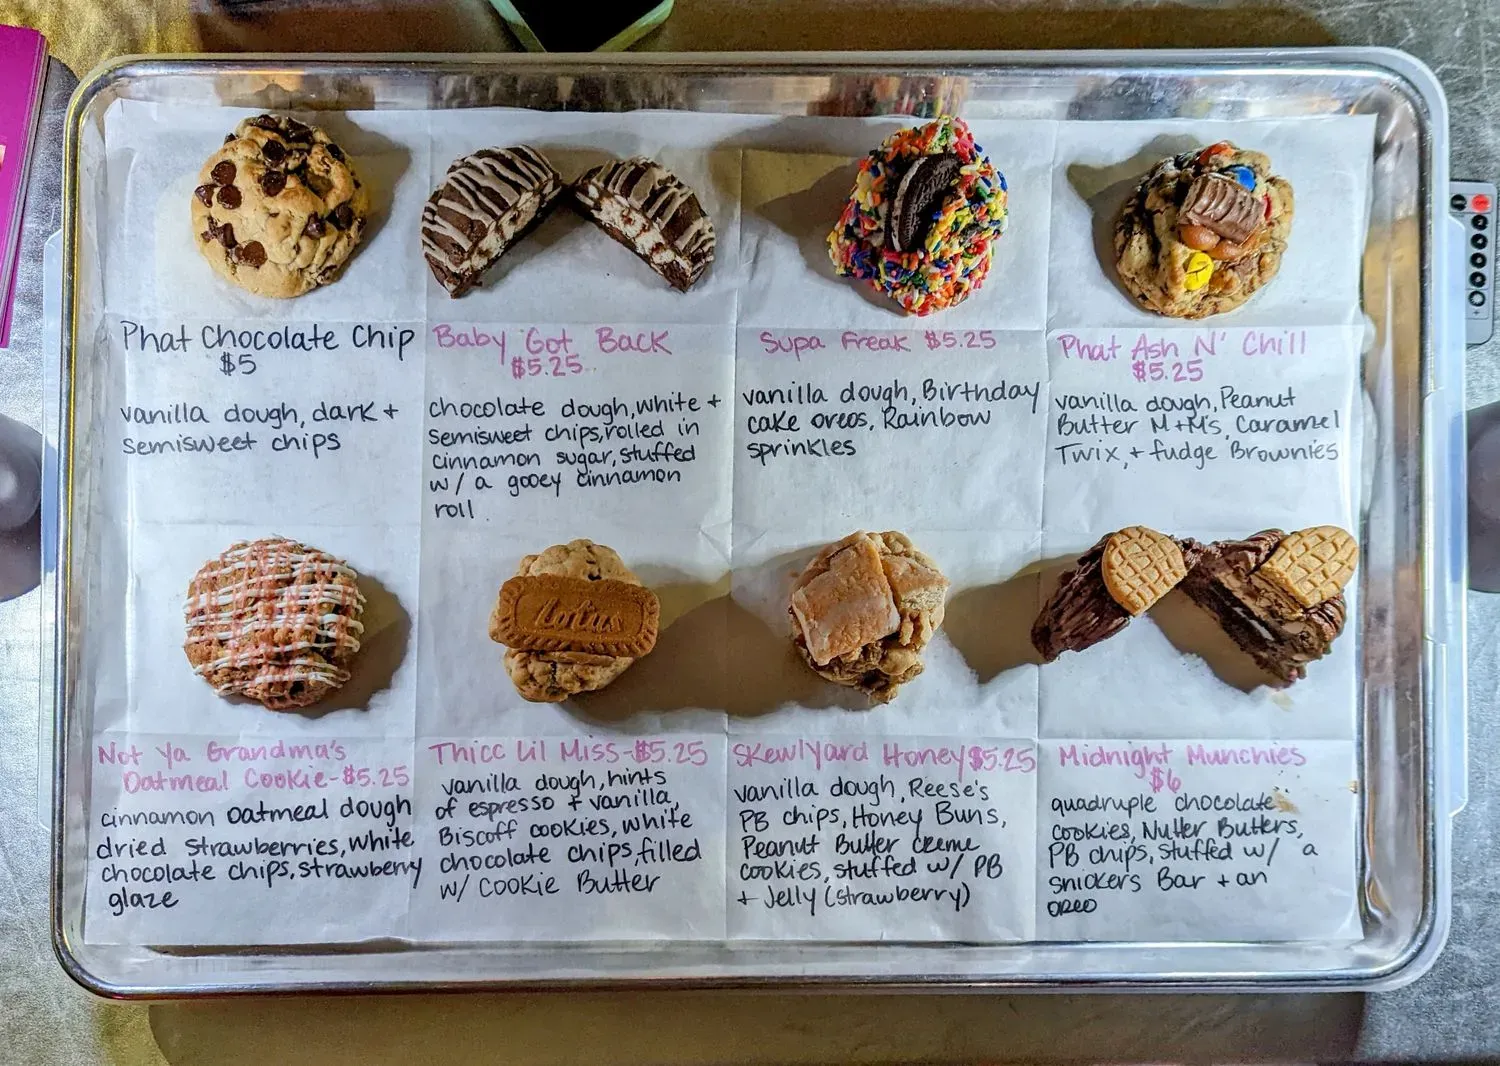 Phat Chocolate Chip
$5
vanilla dough, dark +
semisweet chips
Baby Got Back
$5.25
chocolate dough, white +
semisweet chips, rolled in
cinnamon sugar, stuffed
w/ a gooey cinnamon
roll
Supa Freak $5.25
vanilla dough, Birthday
cake oreos, Rainbow
sprinkles
Phat Ash N' Chill
$5.25
vanilla dough, Peanut
Butter M+M's, Caramel
Twix, + fudge Brownies
Lotus
Not Ya Grandma's
Oatmeal Cookie-$5.25
cinnamon oatmeal dough
dried strawberries, white
chocolate chips, strawberry
glaze
Thicc Lil Miss-$5.25
vanilla dough, hints
of espresso + vanilla,
Biscoff cookies, white
chocolate chips, filled
w/ Cookie Butter
Skewlyard Honey $5.25
vanilla dough, Reese's
PB chips, Honey Buns,
Peanut Butter creme
cookies, stuffed w/ PB
+ Jelly (strawberry)
Midnight Munchies
$6
quadruple chocolate
cookies, Nutter Butters,
PB chips, stuffed w/ a
snickers Bar + an
oreo